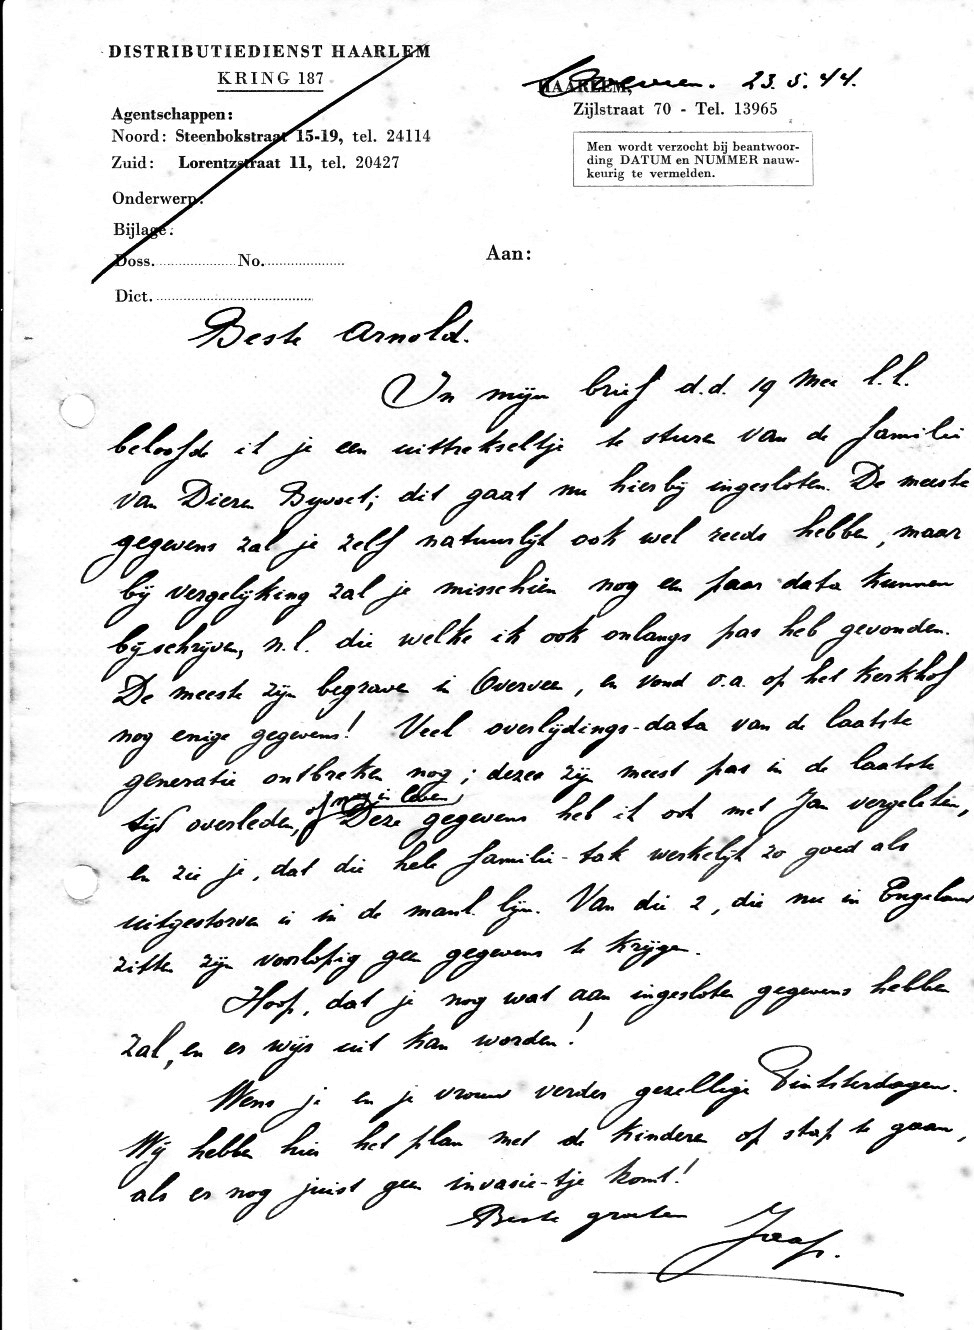 DISTRIBUTIEDIENST HAARLEM
KRING 187
Agentschappen:
Noord: Steenbokstraat 15-19, tel. 24114
Zuid: Lorentzstraat 11, tel. 20427
Onderwerp:
Bijlage:
Doss. No.
Dict.
HAARLEM, 23.5.44.
Zijlstraat 70 - Tel. 13965
Men wordt verzocht bij beantwoor-
ding DATUM en NUMMER nauw-
keurig te vermelden.
Aan:
Beste Arnold.
In mijn brief d.d. 19 Mei l.l.
beloofde ik je een uittrekseltje te sturen van de familie
van Dieren Bijvoet; dit gaat nu hierbij ingesloten. De meeste
gegevens zal je zelf natuurlijk ook wel reeds hebben, maar
bij vergelijking zal je misschien nog een paar data kunnen
bijschrijven, n.l. die welke ik ook onlangs pas heb gevonden.
De meeste zijn begraven in Overveen, en vond o.a. op het kerkhof
nog enige gegevens! Veel overlijdings-data van de laatste
generatie ontbreken nog; dezen zijn meest pas in de laatste
tijd overleden, of nog in leven, Deze gegevens heb ik ook met Jan vergeleken,
en zie je, dat die hele familie-tak werkelijk zo goed als
uitgestorven is in de manl. lijn. Van die 2, die nu in Engeland
zitten zijn voorlopig geen gegevens te krijgen.
Hoop, dat je nog wat aan ingesloten gegevens hebben
zal, en er wijs uit kan worden!
Wens je en je vrouw verder gezellige Pinksterdagen.
Wij hebben hier het plan met de kinderen op stap te gaan,
als er nog juist geen invasie-tje komt!
Beste groeten
Jaap.